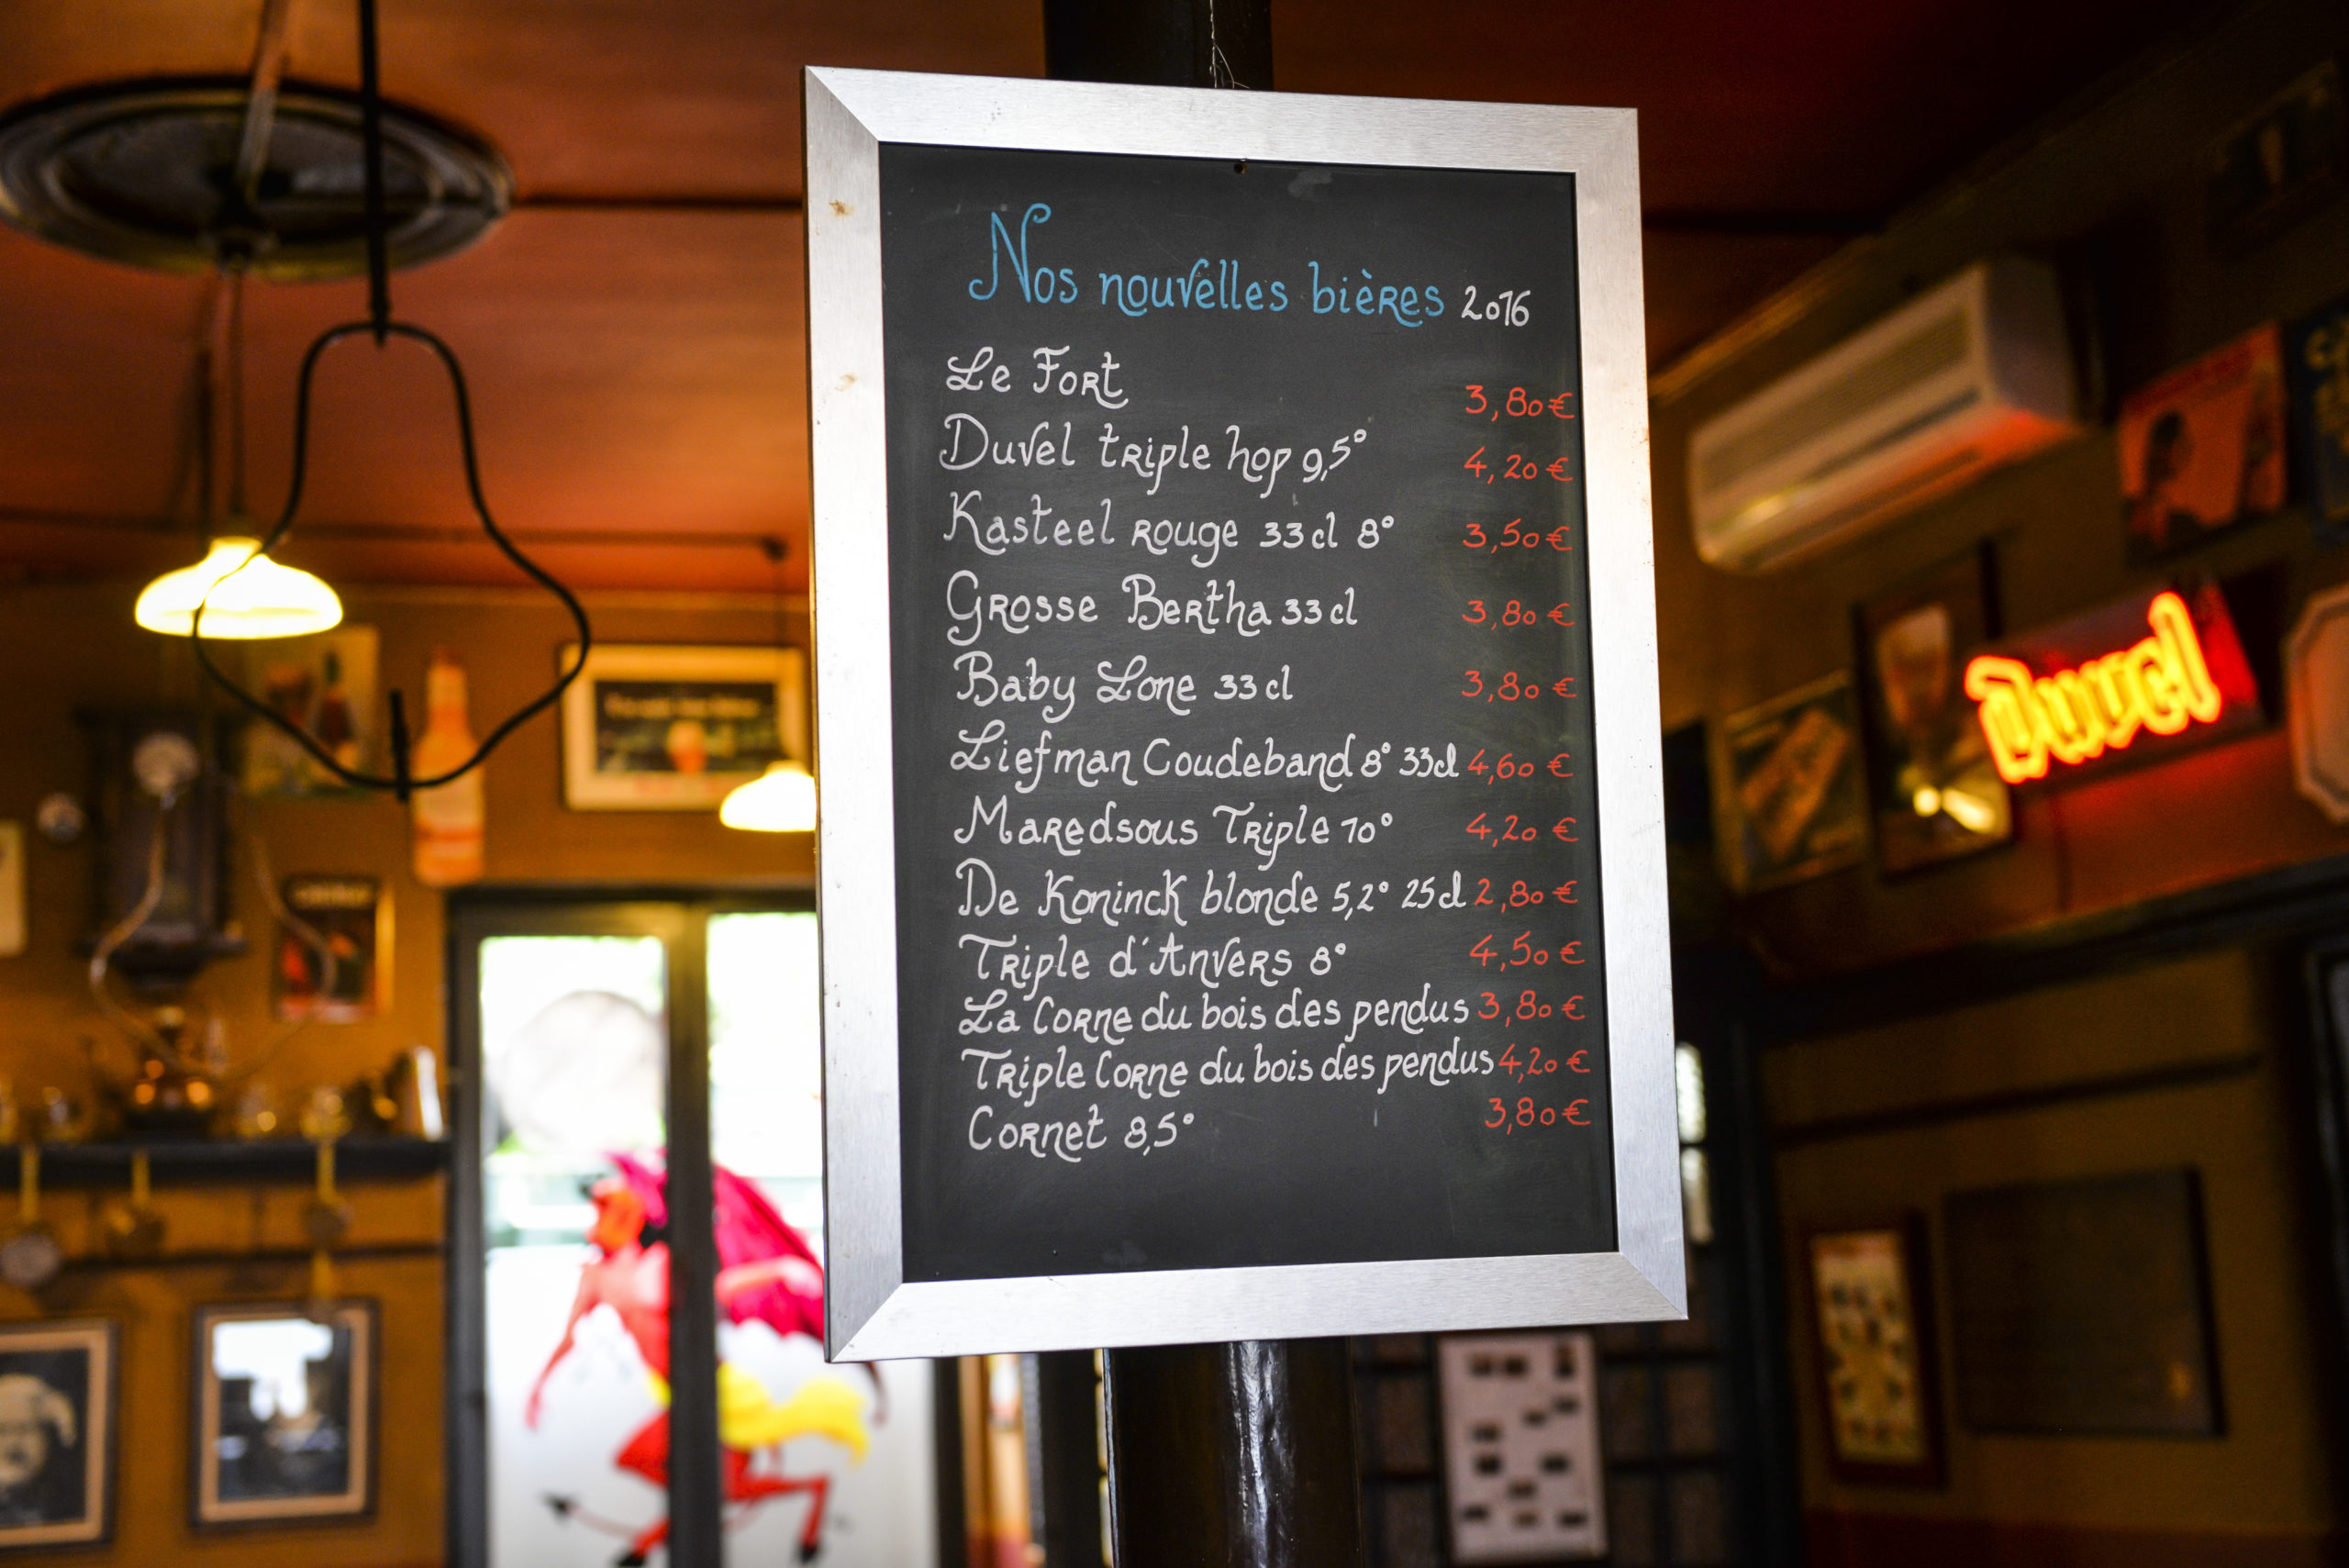 Nos nouvelles bières 2016
Le Fort 3,80 €
Duvel triple hop 9,5° 4,20 €
Kasteel rouge 33 cl 8° 3,50 €
Grosse Bertha 33 cl 3,80 €
Baby Lone 33 cl 3,80 €
Liefman Coudeband 8° 33cl 4,60 €
Maredsous Triple 10° 4,20 €
De Koninck blonde 5,2° 25cl 2,80 €
Triple d'Anvers 8° 4,50 €
La Corne du bois des pendus 3,80 €
Triple Corne du bois des pendus 4,20 €
Cornet 8,5° 3,80 €
Duvel